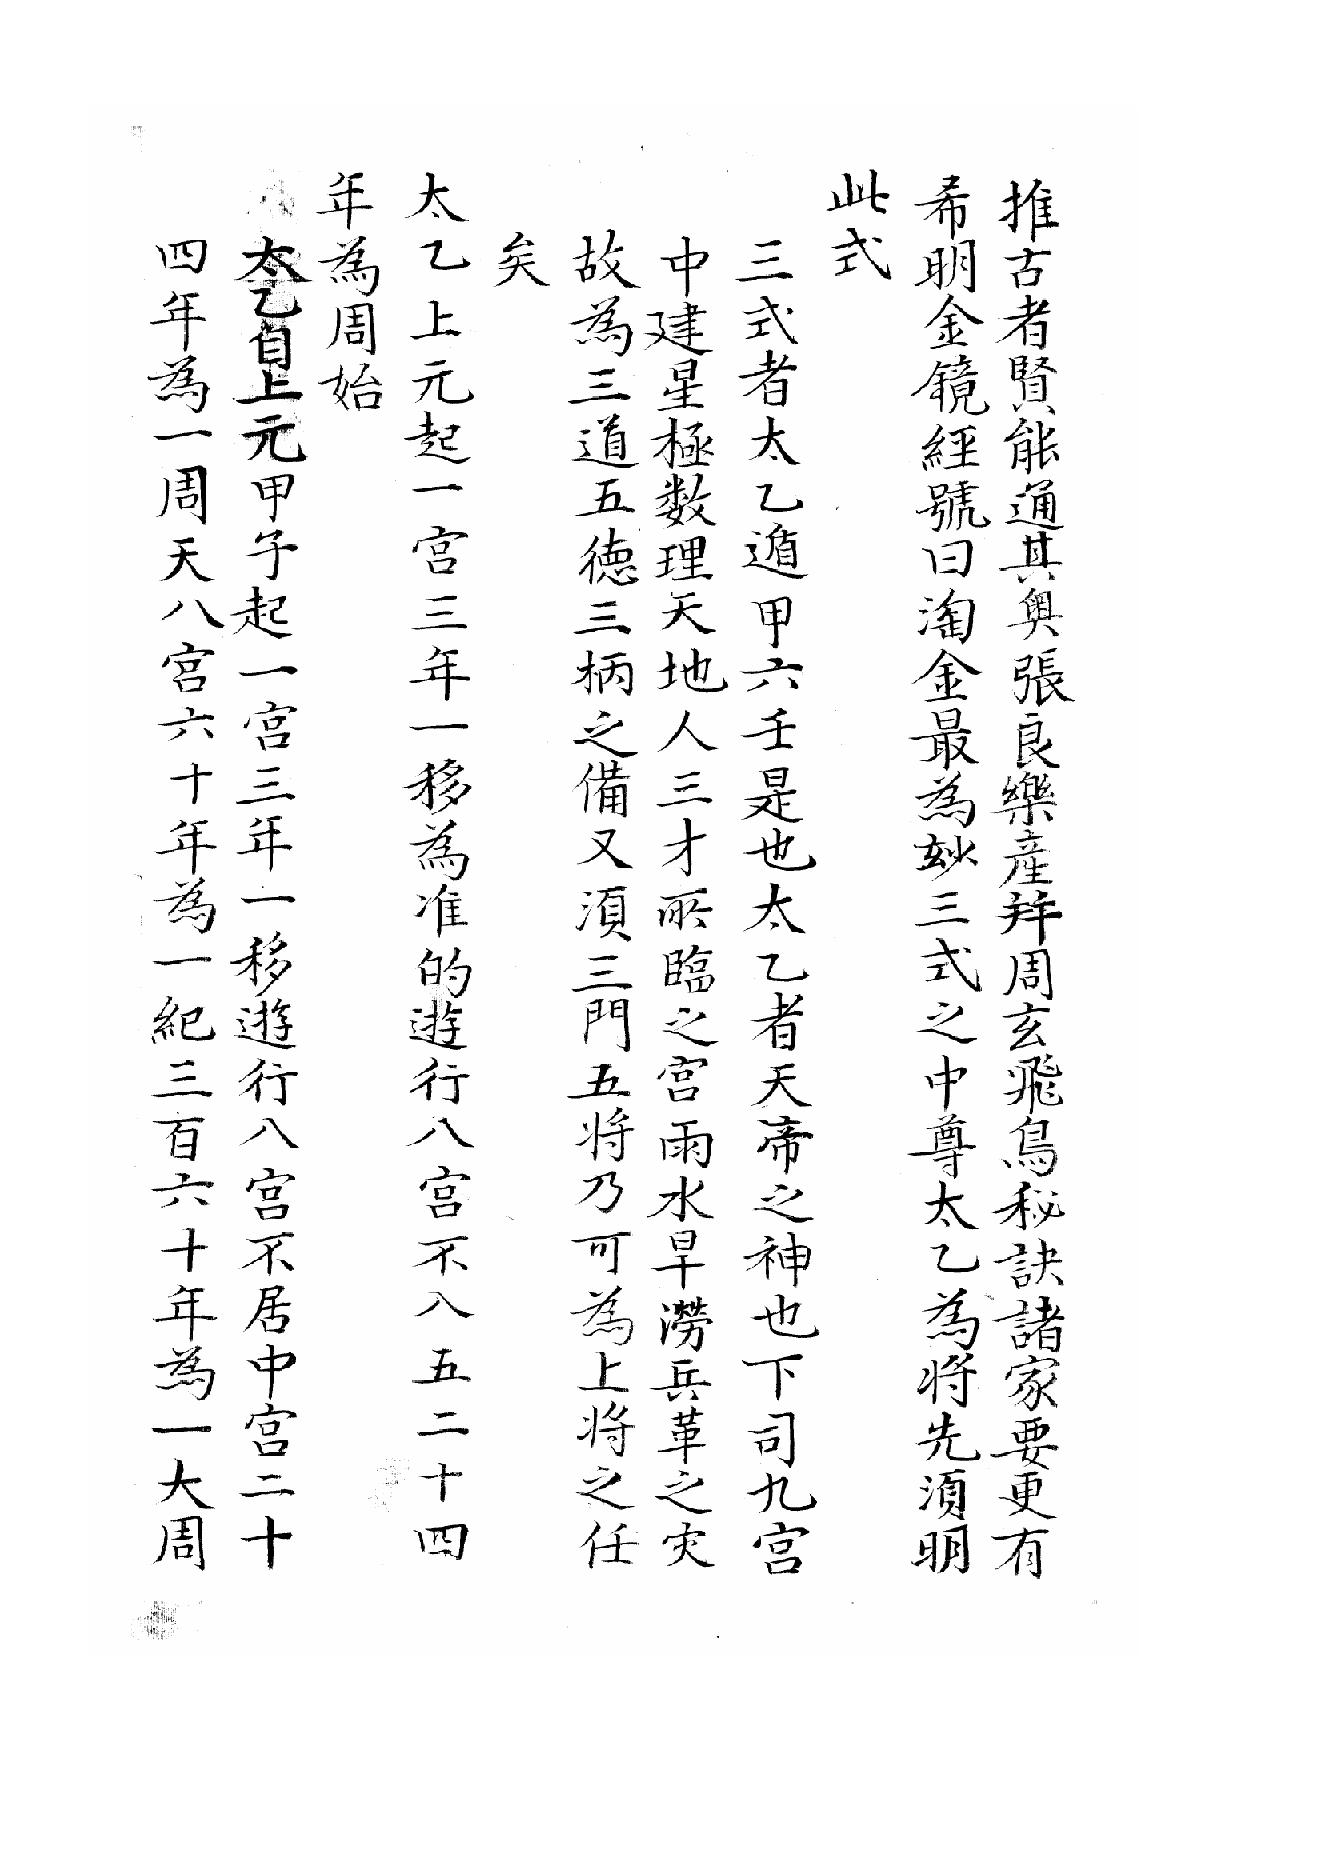 推古者賢能通其奧張良樂產拜周玄飛鳥秘訣諸家要更有
希明金鏡經號曰淘金最為玅三式之中尊太乙為将先湏明
此式
三式者太乙遁甲六壬是也太乙者天帝之神也下司九宫
中建星極数理天地人三才所臨之宫雨水旱澇兵革之灾
故為三道五德三柄之備又湏三門五将乃可為上将之任
矣
太乙上元起一宫三年一移為准的遊行八宫不入五二十四
年為周始
太乙自上元甲子起一宫三年一移遊行八宫不居中宫二十
四年為一周天八宫六十年為一紀三百六十年為一大周